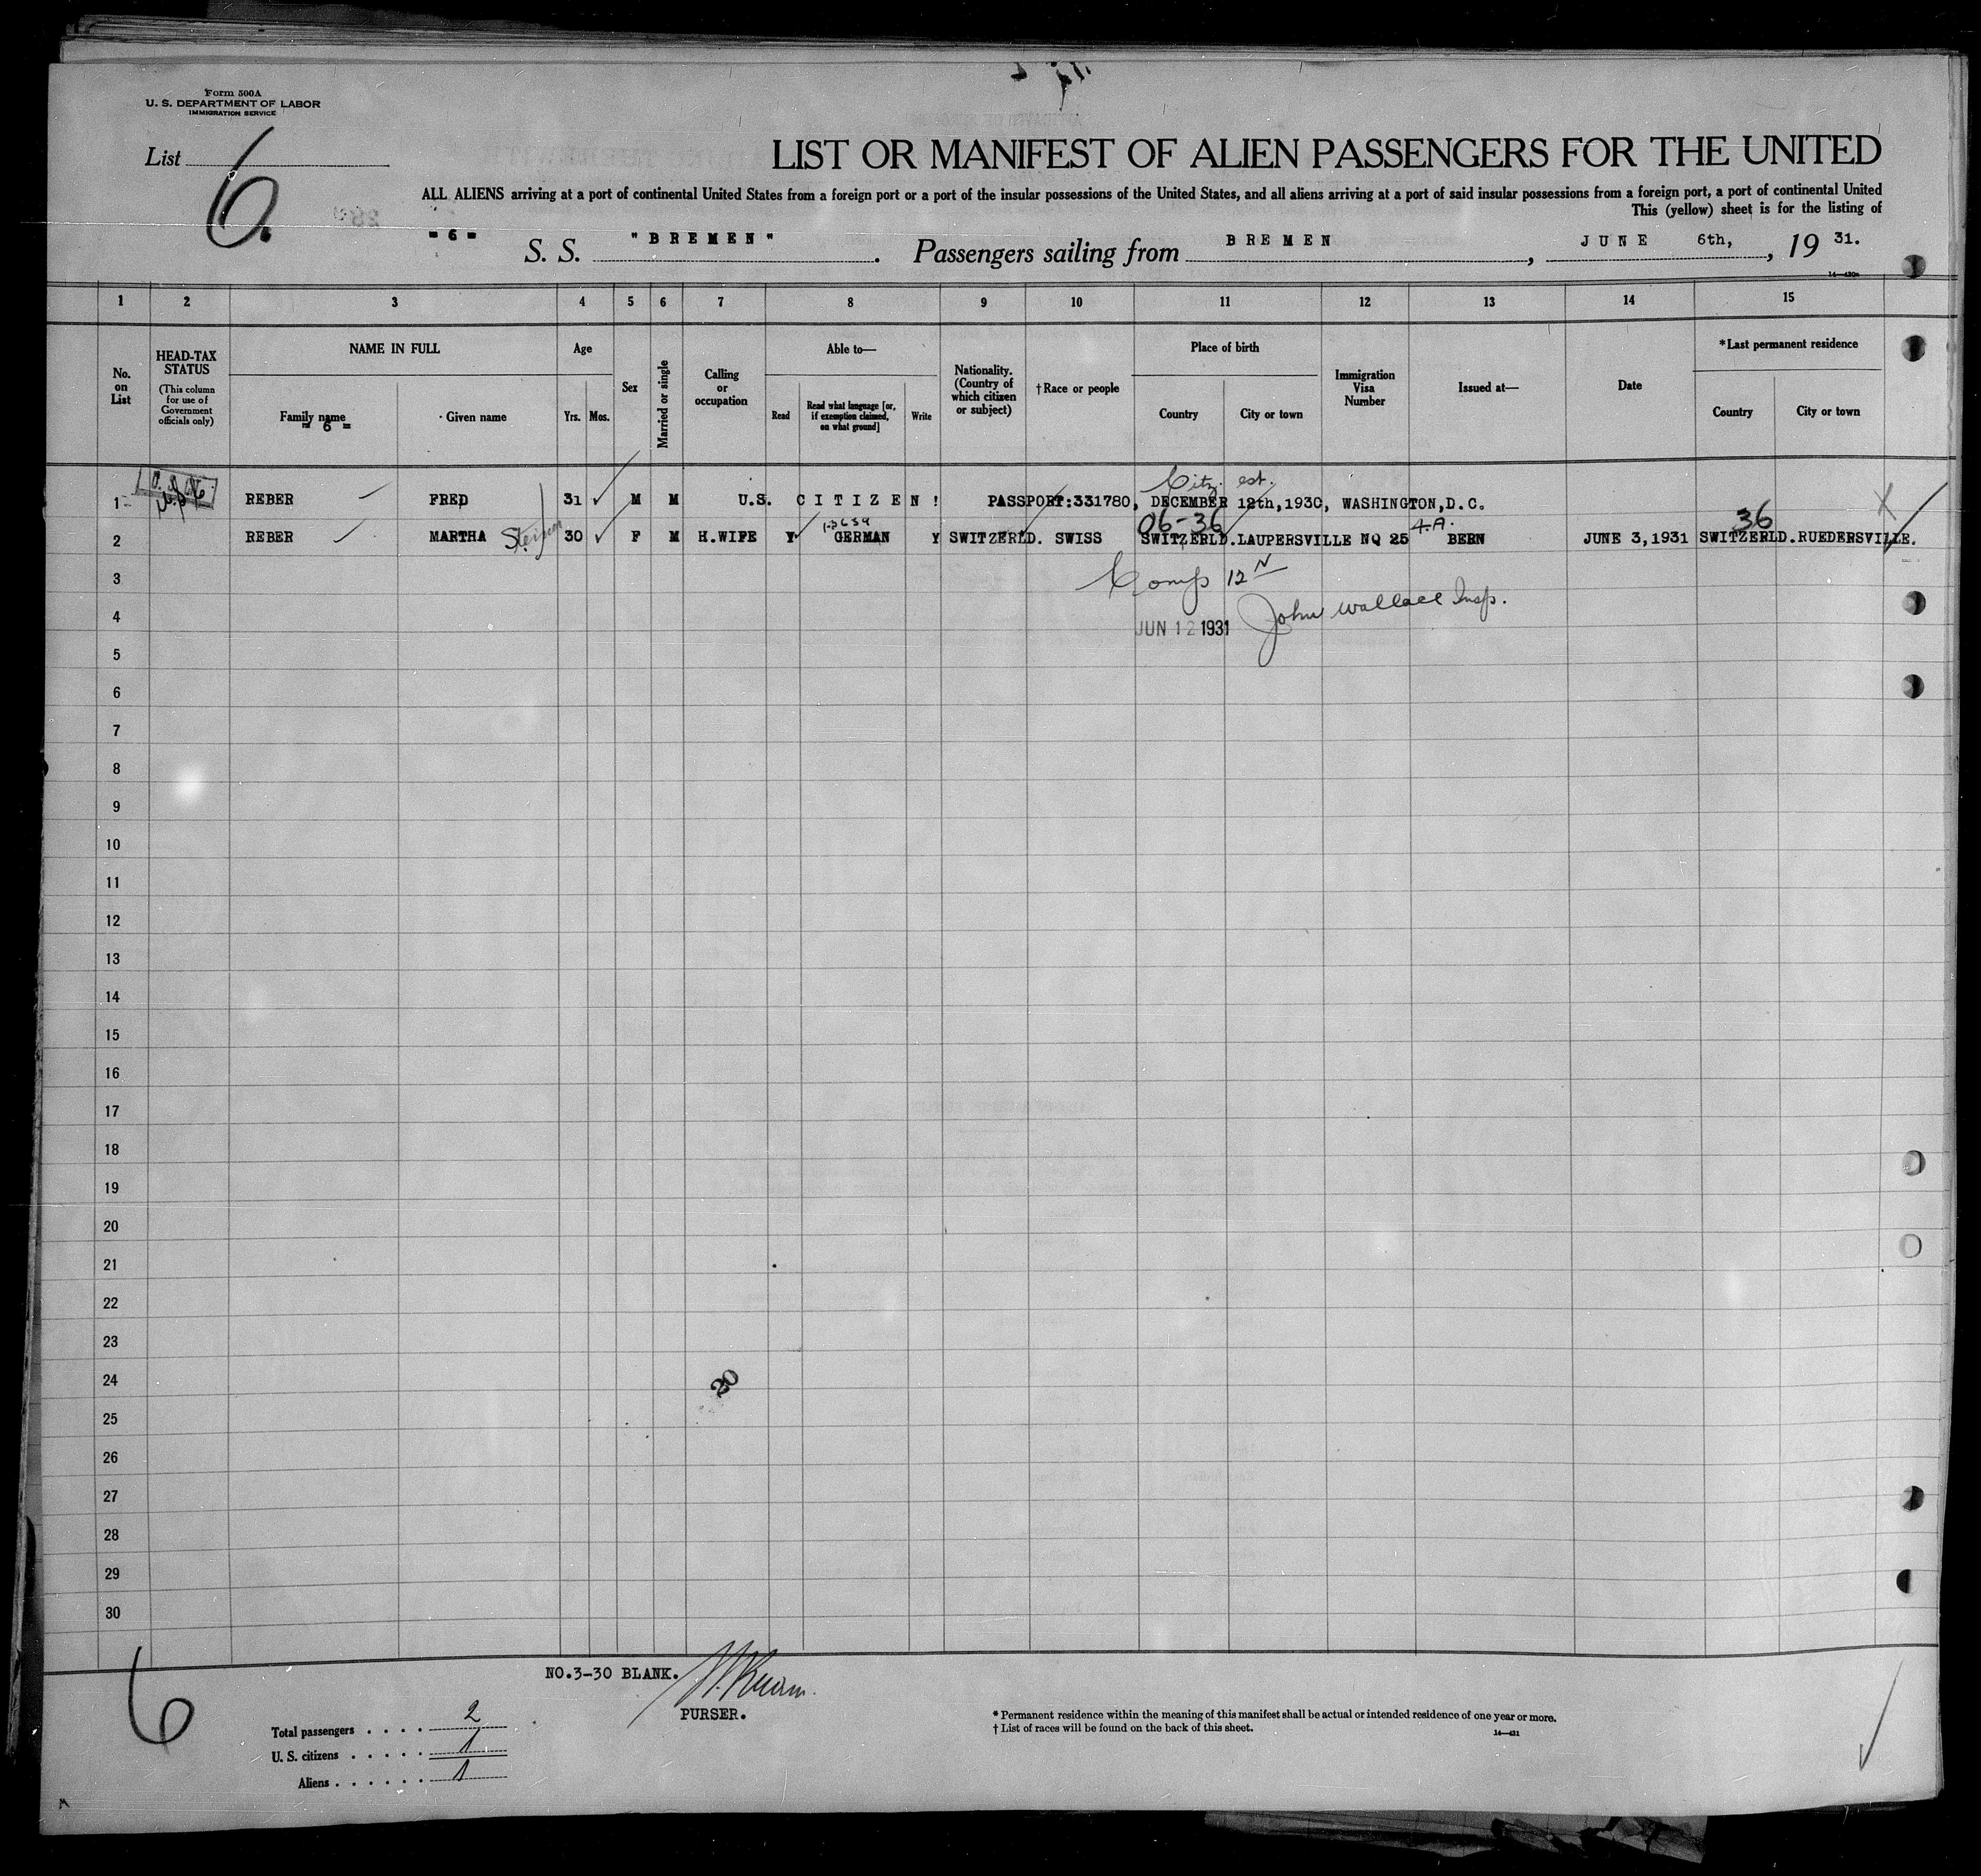 Form 500A
U. S. DEPARTMENT OF LABOR
IMMIGRATION SERVICE
List 6.
LIST OR MANIFEST OF ALIEN PASSENGERS FOR THE UNITED
ALL ALIENS arriving at a port of continental United States from a foreign port or a port of the insular possessions of the United States, and all aliens arriving at a port of said insular possessions from a foreign port, a port of continental United
This (yellow) sheet is for the listing of
= 6 = S. S. "BREMEN". Passengers sailing from BREMEN, JUNE 6th, 19 31.
1 2 3 4 5 6 7 8 9 10 11 12 13 14 15
No. on List
HEAD-TAX STATUS
(This column for use of Government officials only)
NAME IN FULL
Family name
= 6 =
Given name
Age
Yrs. Mos.
Sex
Married or single
Calling or occupation
Able to—
Read
Read what language [or, if exemption claimed, on what ground]
Write
Nationality. (Country of which citizen or subject)
†Race or people
Place of birth
Country City or town
Immigration Visa Number
Issued at—
Date
*Last permanent residence
Country City or town
Citz. est.
1 REBER FRED 31 M M U.S. CITIZEN! PASSPORT:331780, DECEMBER 12th,1930, WASHINGTON,D.C.
06-36 4A. 36
2 REBER MARTHA 30 F M H.WIFE Y GERMAN Y SWITZERLD. SWISS SWITZERLD.LAUPERSVILLE NQ 25 BERN JUNE 3,1931 SWITZERLD.RUEDERSVILLE.
3 Comp 12 N
4 John Wallace Insp.
JUN 12 1931
5
6
7
8
9
10
11
12
13
14
15
16
17
18
19
20
21
22
23
24
30
25
26
27
28
29
30
NO.3-30 BLANK.
PURSER.
6
Total passengers . . . . 2
U. S. citizens . . . . . 1
Aliens . . . . . . 1
* Permanent residence within the meaning of this manifest shall be actual or intended residence of one year or more.
† List of races will be found on the back of this sheet.
14—431